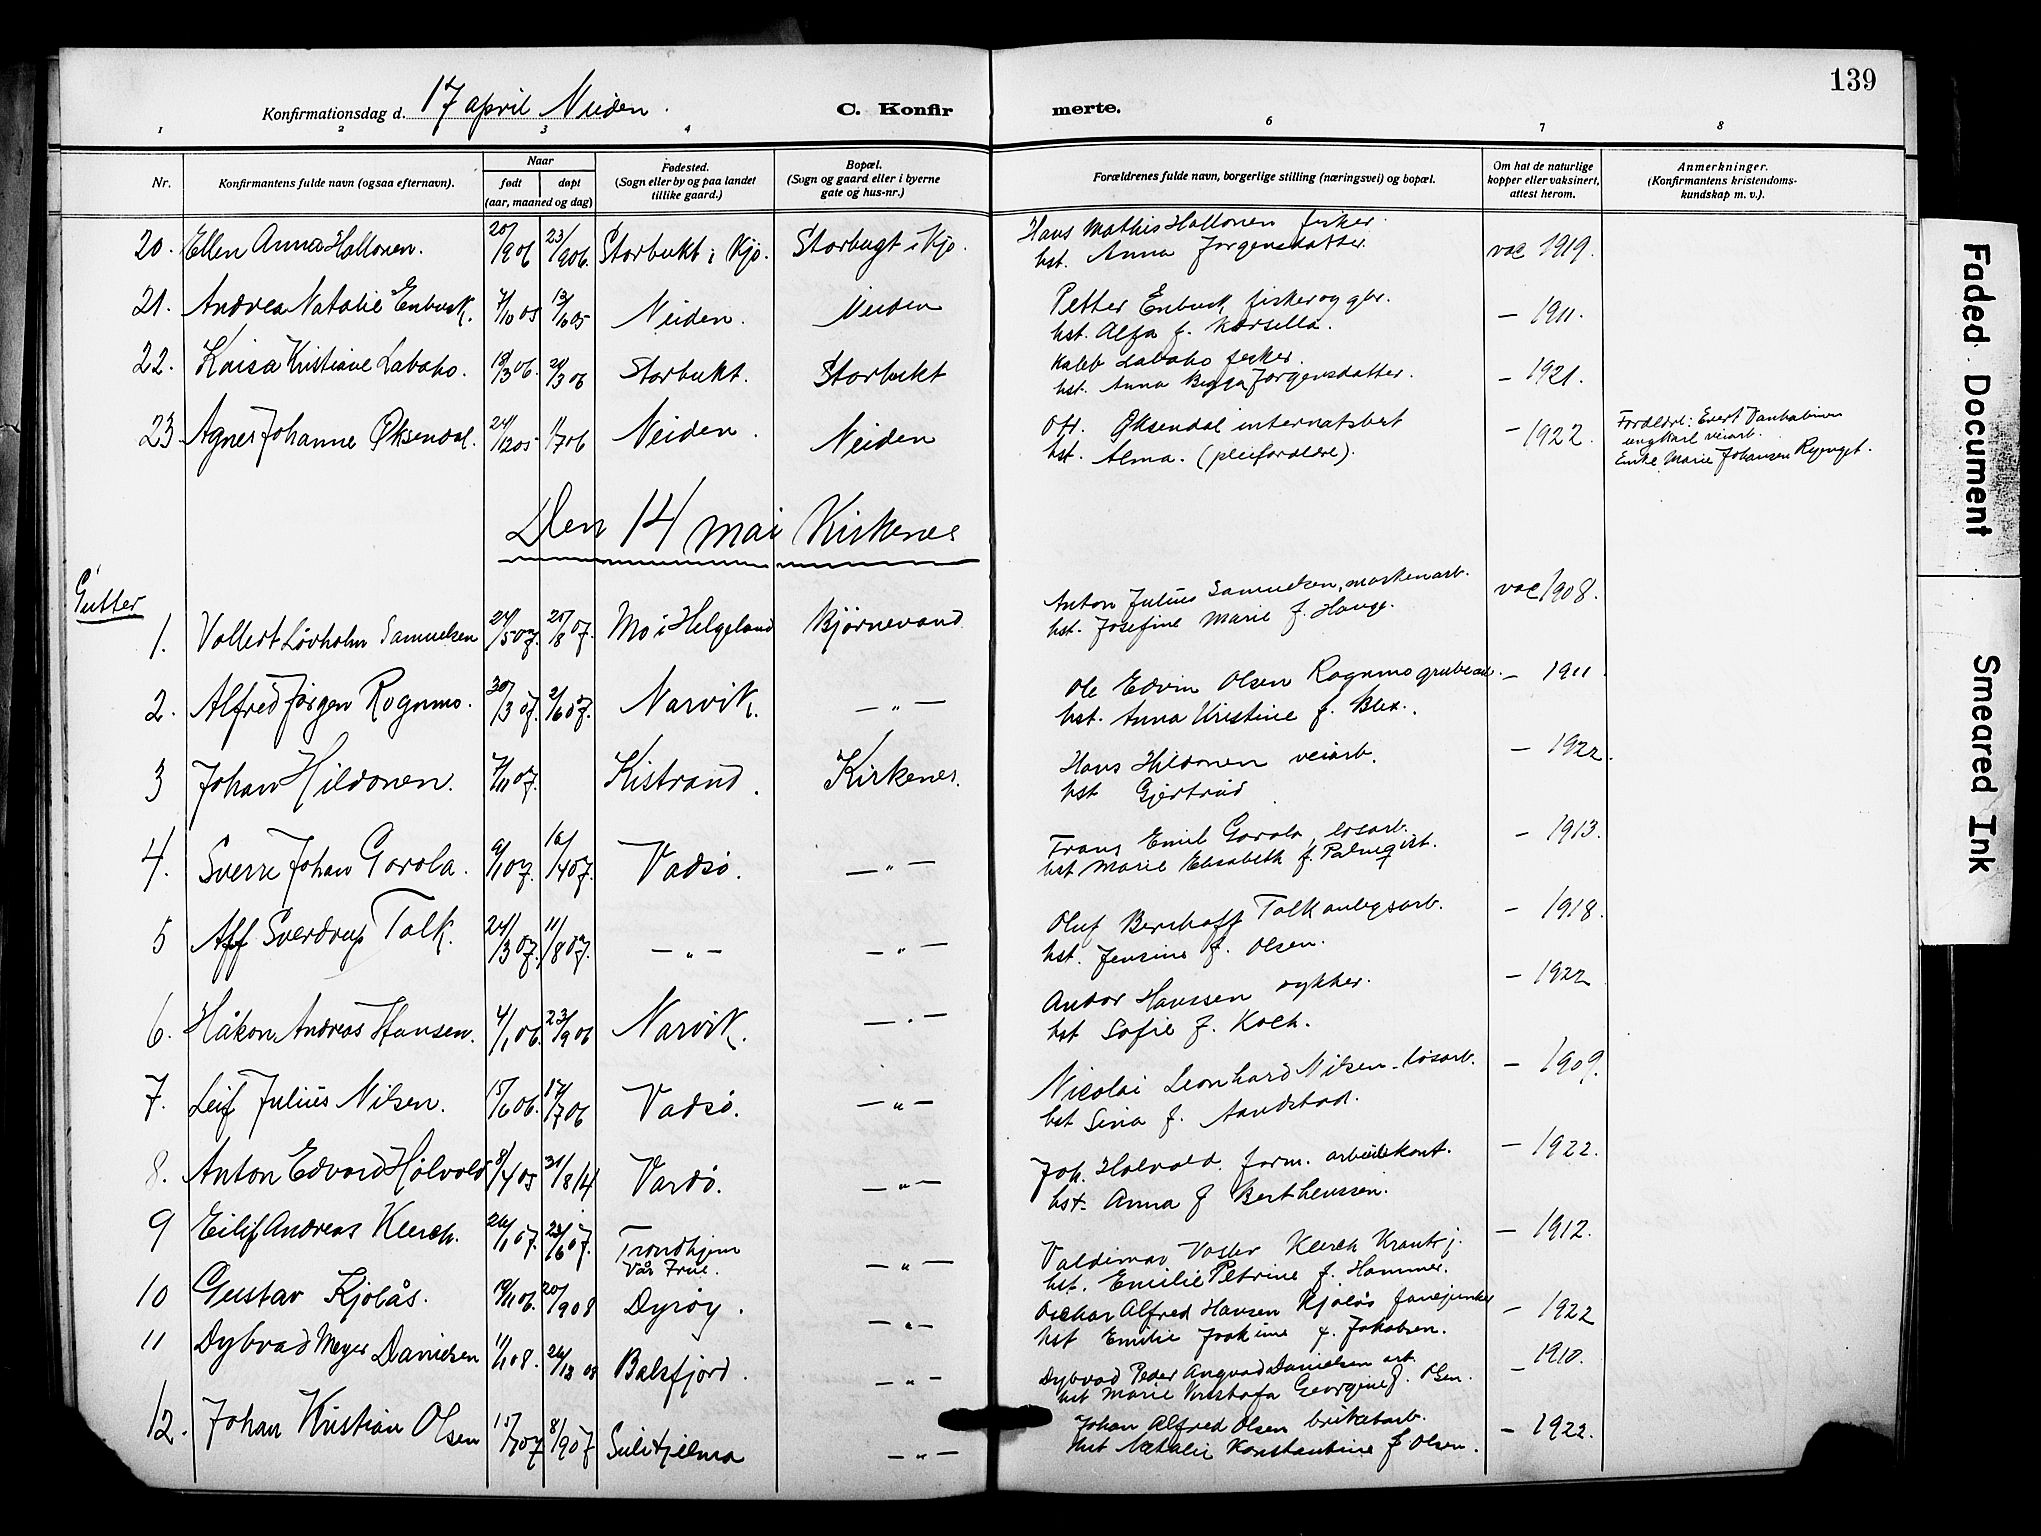 139
Konfirmationsdag d. 17 april Neiden.
C. Konfirmerte.
1 2 3 4 5 6 7 8
Nr. Konfirmantens fulde navn (ogsaa efternavn). Naar født døpt (aar, maaned og dag) Fødested. (Sogn eller by og paa landet tillike gaard.) Bopæl. (Sogn og gaard eller i byerne gate og hus-nr.) Forældrenes fulde navn, borgerlige stilling (næringsvei) og bopæl. Om hat de naturlige kopper eller vaksinert, attest herom. Anmerkninger. (Konfirmantens kristendomskundskap m. v.).
20. Ellen Anna Hallonen. 20/9 06 23/9 06. Storbukt i Kjø. Storbugt i Kjø. Hans Mathis Hallonen fisker. vac 1919.
hst. Anna Jørgensdatter
21. Andrea Natalie Enbusk. 7/10 05 13/10 05 Neiden. Neiden Petter Enbusk, fisker og gbr. — 1911.
hst. Alfa f. Karsella.
22. Kaisa Kristiane Labaho. 18/3 06. 21/3 06 Storbukt. Storbukt Kaleb Labaho fisker. — 1921.
hst. Anna Jørgensdatter.
23 Agnes Johanne Øksendal. 24/12 05 1/7 06 Neiden. Neiden Øksendal internatsbest — 1922. Foreldre: Evert
hst. Alma. (pleiforeldre). ungkarl veiarb.
Marie Johansen
Den 14 mai Kirkenes
Gutter
1. Vollert Løvholm Samuelsen 24/5 07. 25/8 07. Mo i Helgeland Bjørnevand Anton Julius Samuelsen, maskenarb. vac 1908.
hst. Josefine Marie f. Hauge.
2. Alfred Jørgen Rognmo. 30/3 07. 2/6 07. Narvik. — " — Ole Edvin Olsen Rognmo grubearb. — 1911
hst. Anna Kristine f. Blix.
3 Johan Hildonen. 7/11 07. Kistrand. Kirkenes. Hans Hildonen veiarb. — 1922.
hst Gjertrud
4. Sverre Johan Gorola. 9/1 07. 14/4 07. Vadsø. — " — Frans Emil Gorola, løsarb. — 1913.
hst Marie Elisabeth f. Palmqvist.
5 Aff Sverdrup Talk. 24/3 07. 11/8 07. — " — — " — Oluf Berchoff Talk anlegsarb. — 1918.
hst. Jensine f. Olsen.
6. Håkon Andreas Hansen. 4/1 06. 23/9 06 Narvik. — " — Andor Hanssen rykker. — 1922
hst Sofie f. Koch.
7. Leif Julius Nilsen. 15/6 06. 17/7 06 Vadsø. — " — Nicolai Leonhard Nilsen løsarb. — 1909.
hst Sina f. Aandstad.
8. Anton Edvard Holvold 8/4 05 31/8 14 Vardø. — " — Joh. Holvold. form. arbeidskont. — 1922.
hst. Anna f Bertheussen.
9 Eilif Andreas Klerck. 26/1 07. 23/6 07. Trondhjem — " — Valdimar Klerck — 1912.
Vår Frue. hst. Emilie Petrine f. Hammer.
10 Gustav Kjølås. 19/11 06. 20/9 08 Dyrøy. — " — Oskar Alfred Hansen Kjølås — 1922
hst Emilie Joakime f. Jakobsen.
11 Dybvad Meyer Danielsen 1/1 08. 26/12 08 Balsfjord. — " — Dybvad Peder Angvad Danielsen arb. — 1910.
hst Marie Kristofa Georgine f. Olsen.
12. Johan Kristian Olsen 15/7 07 8/9 07 Sulitjelma — " — Johan Alfred Olsen briketarb. — 1922.
hst Natalie Konstantine f Olsen.
Faded Document
Smeared Ink